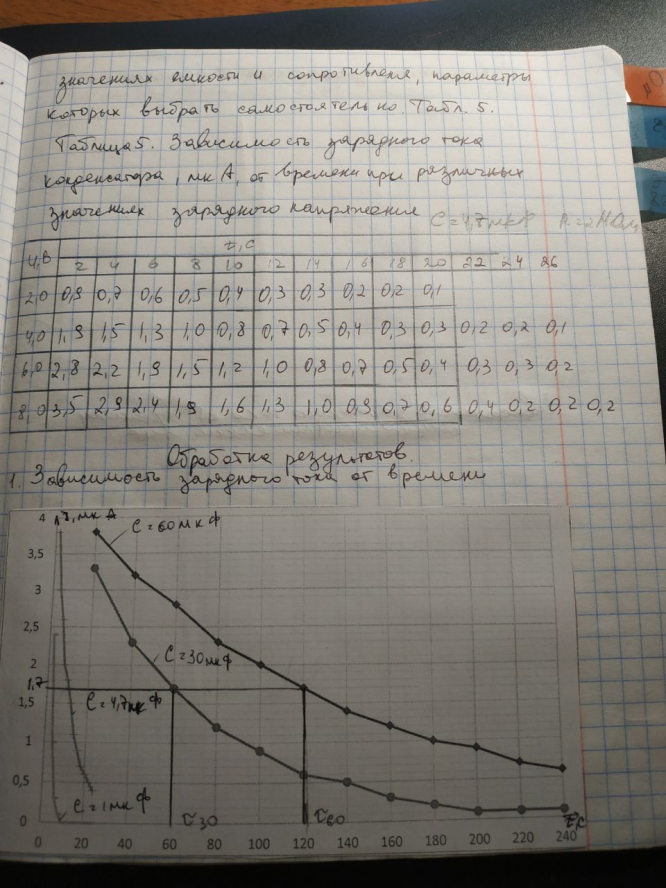 значениях емкости и сопротивленя, параметры
которых выбрать самостоятельно. Табл. 5.
Таблица 5. Зависимость зарядного тока
конденсатора, мкА, от времени при различных
значениях зарядного напряжения C=4,7мкф R=2МОм
U,В t,c
2 4 6 8 10 12 14 16 18 20 22 24 26
2,0 0,9 0,7 0,6 0,5 0,4 0,3 0,3 0,2 0,2 0,1
4,0 1,9 1,5 1,3 1,0 0,8 0,7 0,5 0,4 0,3 0,3 0,2 0,2 0,1
6,0 2,8 2,2 1,9 1,5 1,2 1,0 0,8 0,7 0,5 0,4 0,3 0,3 0,2
8,0 3,5 2,9 2,4 1,9 1,6 1,3 1,0 0,9 0,7 0,6 0,4 0,2 0,2 0,2
Обработка результатов.
1. Зависимость зарядного тока от времени
4 I, мкА
C=60мкф
3,5
3
2,5
2
C=30мкф
1,7
1,5
C=4,7мкф
1
0,5
C=1мкф
0
τ30 τ60 t,c
0 20 40 60 80 100 120 140 160 180 200 220 240